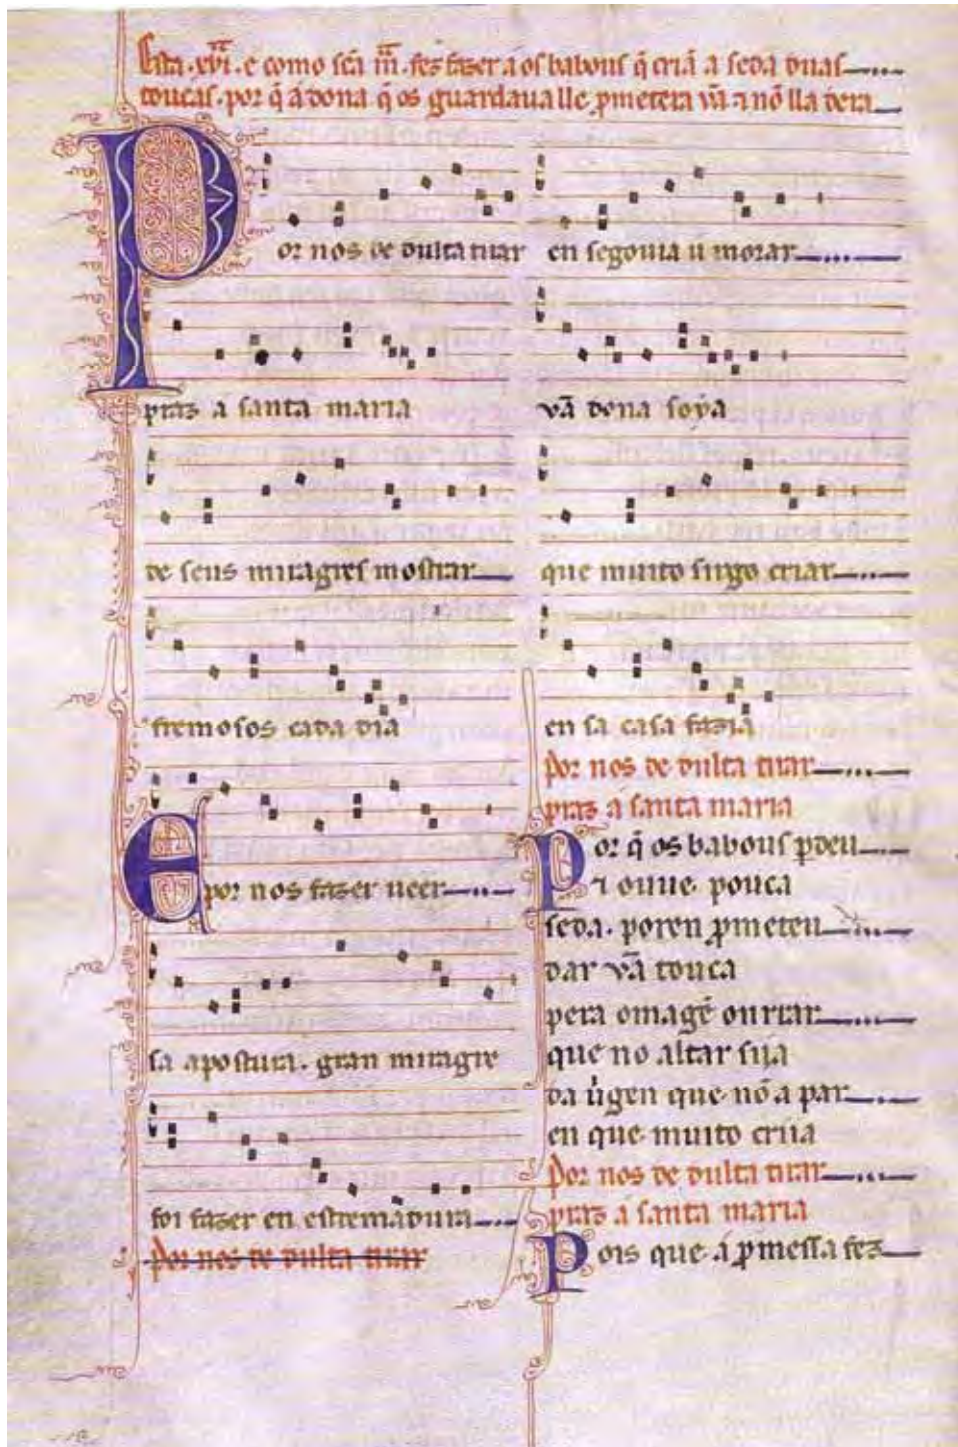 Esta .xvi. e como sc̃a m̃. fez fazer a os babous q̃ criã a seda duas
toucas. por q̃ a dona q̃ os guardaua lle ꝓmetera vã ⁊ nõ lla dera
Por nos de dulta tirar
praz a santa maria
de seus miragres mostrar
fremosos cada dia
E por nos fazer ueer
sa apostura. gran miragre
foi fazer en estremadura
Por nos de dulta tirar
en segouia u morar
vã dona soya
que muito sirgo criar
en sa casa fazia
Por nos de dulta tirar
praz a santa maria
Por q̃ os babous ꝑdeu
⁊ ouue pouca
seda. poren ꝓmeteu
dar vã touca
pera omagẽ onrrar
que no altar sija
da uirgen que nõ a par
en que muito crija
Por nos de dulta tirar
praz a santa maria
Pois que a ꝓmessa fez